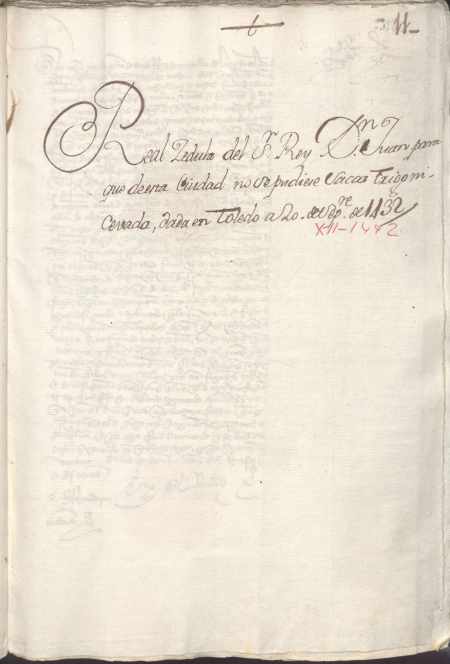 11
Real Zedula del S.r Rey D.n Juan para
que de esta Ciudad no se pudiese Sacar Trigo ni
Cevada, dada en Toledo a 20. de de 1432
XII-1442